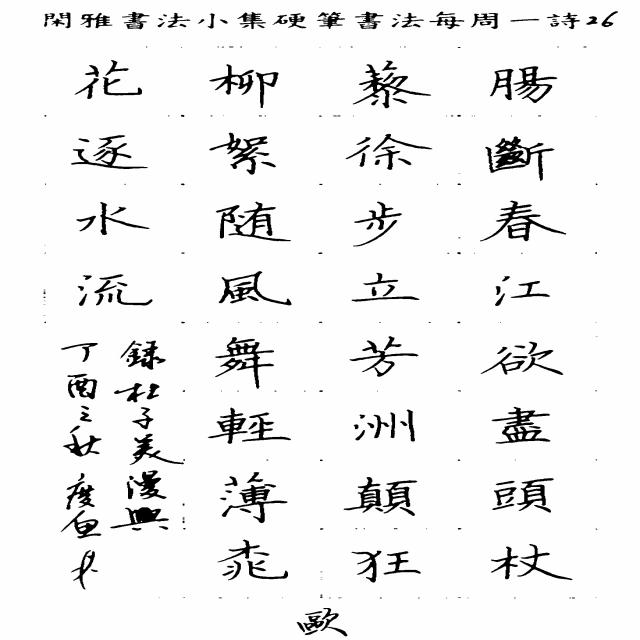 閑雅書法小集硬筆書法每周一詩26
腸斷春江欲盡頭杖
藜徐步立芳洲顛狂
柳絮随風舞輕薄桃
花逐水流
録杜子美漫興
丁酉之秋 度鱼书
歐